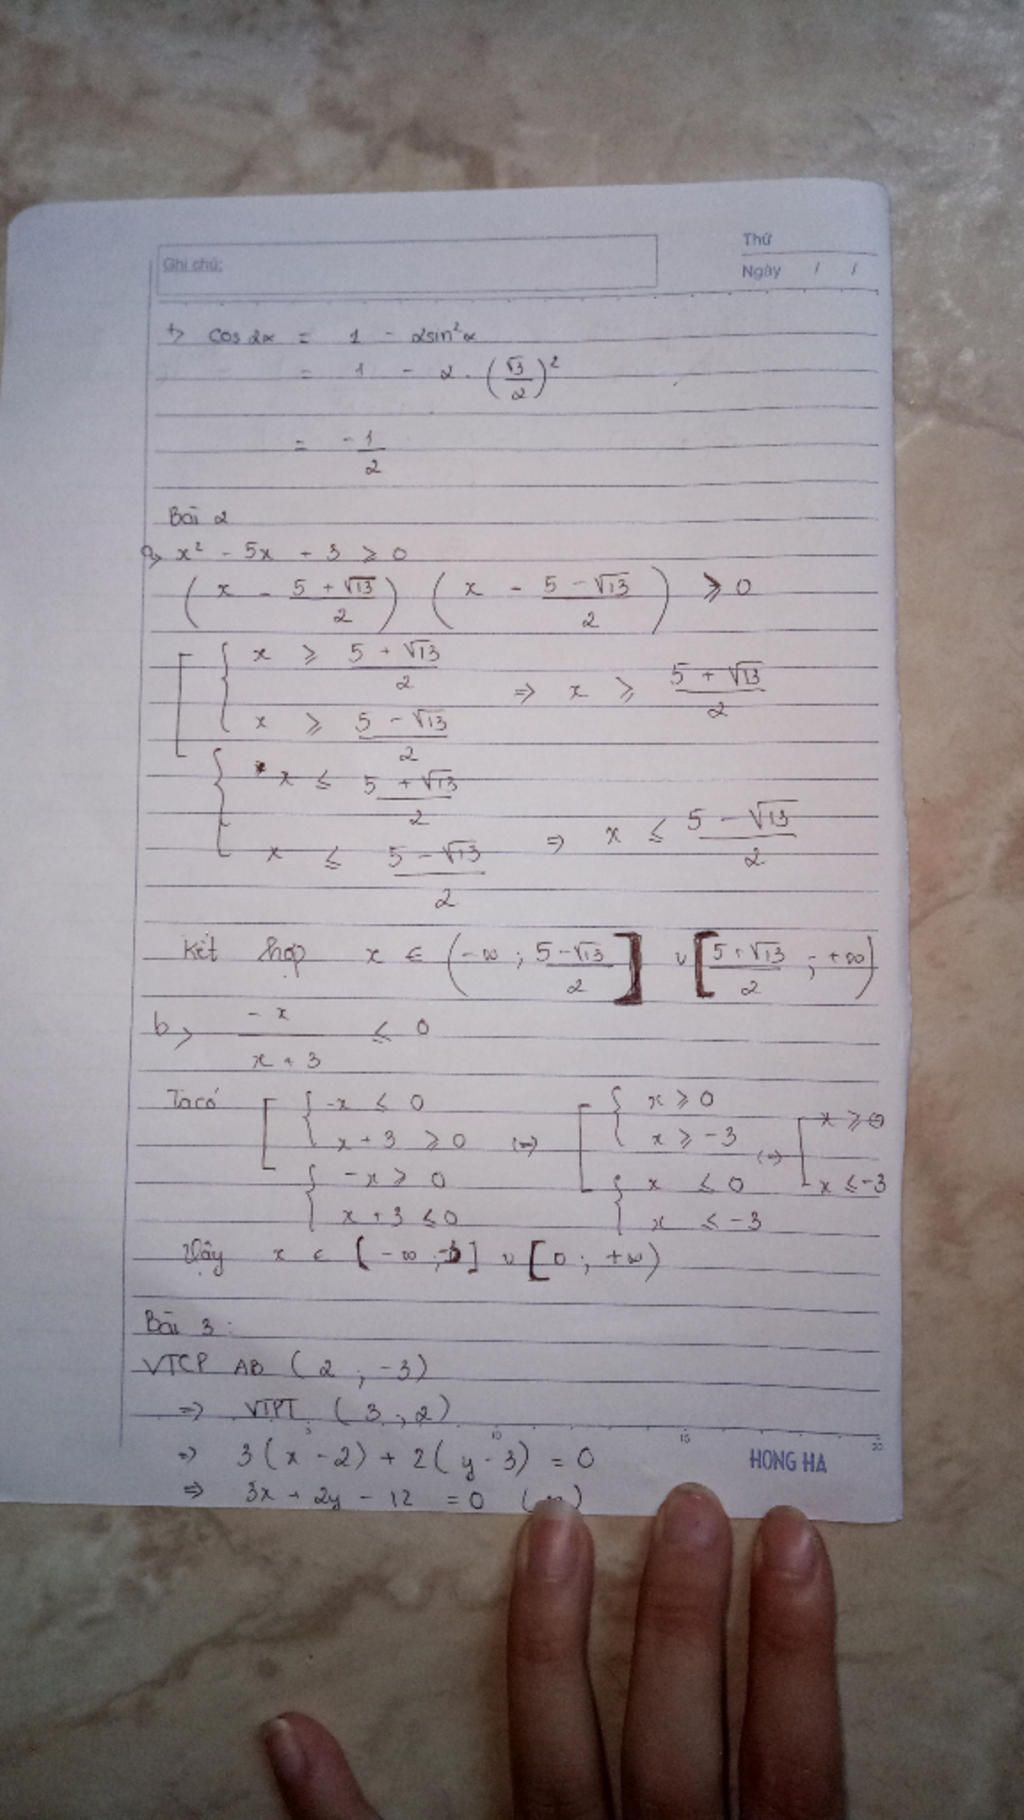 Ghi chú:
Thứ
Ngày / /
+> cos 2α = 1 - 2sin²α
= 1 - 2 . (√3/2)²
= -1/2
Bài 2
a> x² - 5x + 3 ≥ 0
(x - (5 + √13)/2) (x - (5 - √13)/2) ≥ 0
[ { x ≥ (5 + √13)/2
x ≥ (5 - √13)/2 => x ≥ (5 + √13)/2
{ x ≤ (5 + √13)/2
x ≤ (5 - √13)/2 => x ≤ (5 - √13)/2
Kết hợp x ∈ (-∞ ; (5-√13)/2] ∪ [(5+√13)/2 ; +∞)
b> -x/(x + 3) ≤ 0
Ta có [ { -x ≤ 0 [ { x ≥ 0 [ x ≥ 0
x + 3 ≥ 0 (=) x ≥ -3 (=)
{ -x ≥ 0 { x ≤ 0 x ≤ -3
x + 3 ≤ 0 x ≤ -3
Vậy x ∈ [-∞ ; -3] ∪ [0 ; +∞)
Bài 3 :
VTCP AB (2 ; -3)
=> VTPT (3 ; 2)
5 10 15 20
=> 3(x - 2) + 2(y - 3) = 0
HONG HA
=> 3x + 2y - 12 = 0